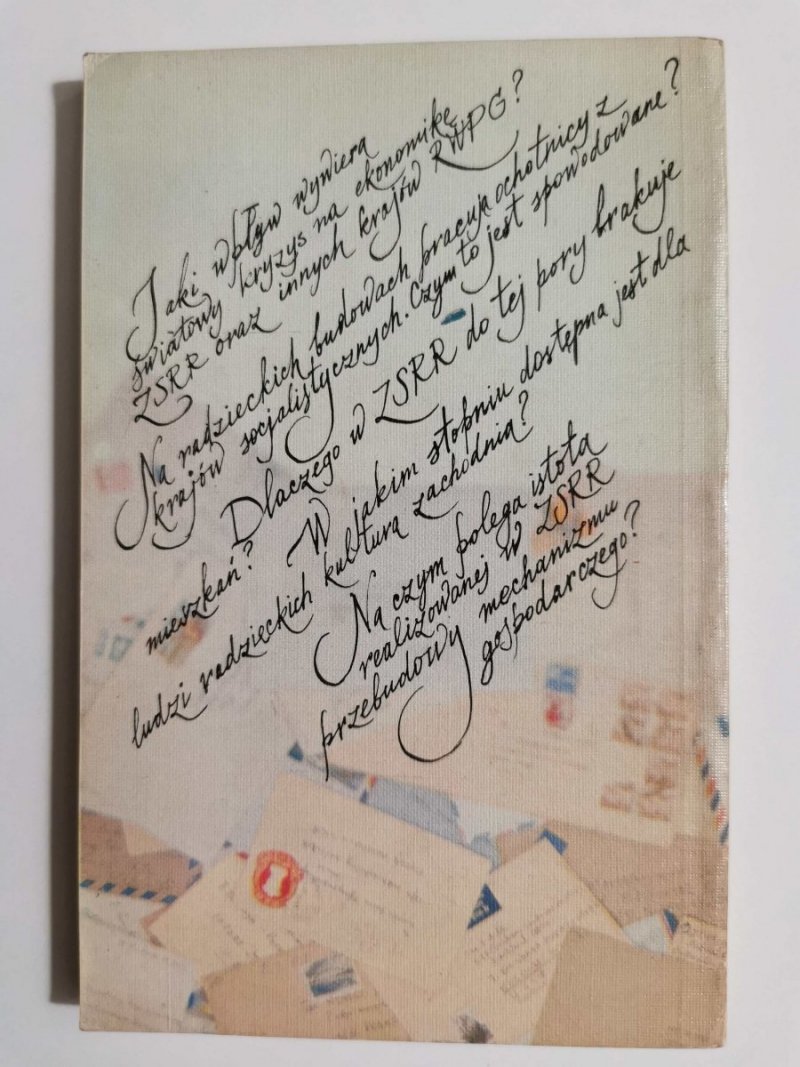 Jaki wpływ wywiera
światowy kryzys na ekonomikę
ZSRR oraz innych krajów RWPG?
Na radzieckich budowach pracują ochotnicy z
krajów socjalistycznych. Czym to jest spowodowane?
Dlaczego w ZSRR do tej pory brakuje
mieszkań? W jakim stopniu dostępna jest dla
ludzi radzieckich kultura zachodnia?
Na czym polega istota
realizowanej w ZSRR
przebudowy mechanizmu
gospodarczego?